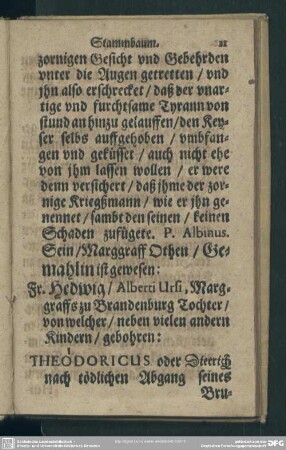 Stammbaum. 21
zornigen Gesicht vnd Gebehrden
vnter die Augen getretten / vnd
jhn also erschrecket / daß der vnar-
tige vnd furchtsame Tyrann von
stund an hinzu gelauffen / den Key-
ser selbs auffgehoben / vmbfan-
gen vnd geküsset / auch nicht ehe
von jhm lassen wollen / er were
denn versichert / daß jhme der zor-
nige Kriegßmann / wie er jhn ge-
nennet / sambt den seinen / keinen
Schaden zufügete. P. Albinus.
Sein / Marggraff Othen / Ge-
mahlin ist gewesen:
Fr. Hedwig / Alberti Ursi, Marg-
graffs zu Brandenburg Tochter /
von welcher / neben vielen andern
Kindern / gebohren:
THEODORICUS oder Dieterich
nach tödlichen Abgang seines
Bru-
DFG